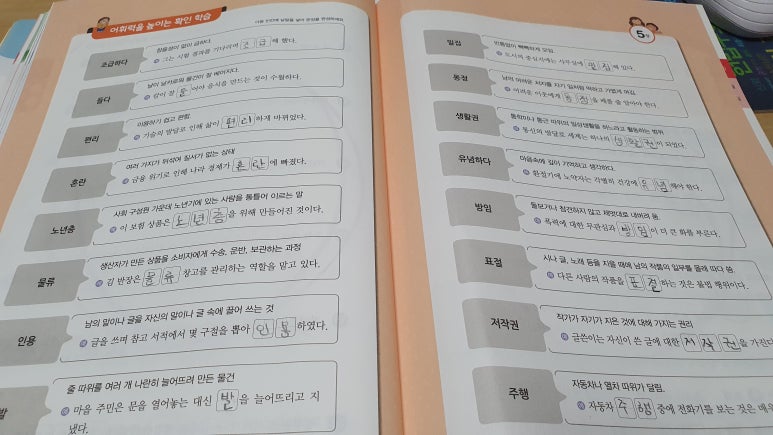 어휘력을 높이는 확인 학습
다음 빈칸에 낱말을 넣어 문장을 완성하세요.
조급하다
참을성이 없이 급하다.
그는 시험 결과를 기다리며 조급해 했다.
들다
날이 날카로워 물건이 잘 베어지다.
칼이 잘 들어야 음식을 만드는 것이 수월하다.
편리
이용하기 쉽고 편함.
기술의 발달로 인해 삶이 편리하게 바뀌었다.
혼란
여러 가지가 뒤섞여 질서가 없는 상태
금융 위기로 인해 나라 경제가 혼란에 빠졌다.
노년층
사회 구성원 가운데 노년기에 있는 사람을 통틀어 이르는 말
이 보험 상품은 노년층을 위해 만들어진 것이다.
물류
생산자가 만든 상품을 소비자에게 수송, 운반, 보관하는 과정
김 반장은 물류 창고를 관리하는 역할을 맡고 있다.
인용
남의 말이나 글을 자신의 말이나 글 속에 끌어 쓰는 것
글을 쓰며 참고 서적에서 몇 구절을 뽑아 인용하였다.
발
줄 따위를 여러 개 나란히 늘어뜨려 만든 물건
마을 주민은 문을 열어놓는 대신 발을 늘어뜨리고 지
냈다.
5
밀집
빈틈없이 빽빽하게 모임.
도시의 중심지에는 사무실이 밀집해 있다.
동정
남의 어려운 처지를 자기 일처럼 딱하고 가엾게 여김.
어려운 이웃에게 동정을 베풀 줄 알아야 한다.
생활권
통학이나 통근 따위의 일상생활을 하느라고 활동하는 범위
통신의 발달로 세계는 하나의 생활권이 되었다.
유념하다
마음속에 깊이 기억하고 생각하다.
환절기에 노약자는 각별히 건강에 유념해야 한다.
방임
돌보거나 참견하지 않고 제멋대로 내버려 둠.
폭력에 대한 무관심과 방임이 더 큰 화를 부른다.
표절
시나 글, 노래 등을 지을 때에 남의 작품의 일부를 몰래 따다 씀.
다른 사람의 작품을 표절하는 것은 불법 행위이다.
저작권
작가가 자기가 지은 것에 대해 가지는 권리
글쓴이는 자신이 쓴 글에 대한 저작권을 가진다
주행
자동차나 열차 따위가 달림.
자동차 주행 중에 전화기를 보는 것은 매우